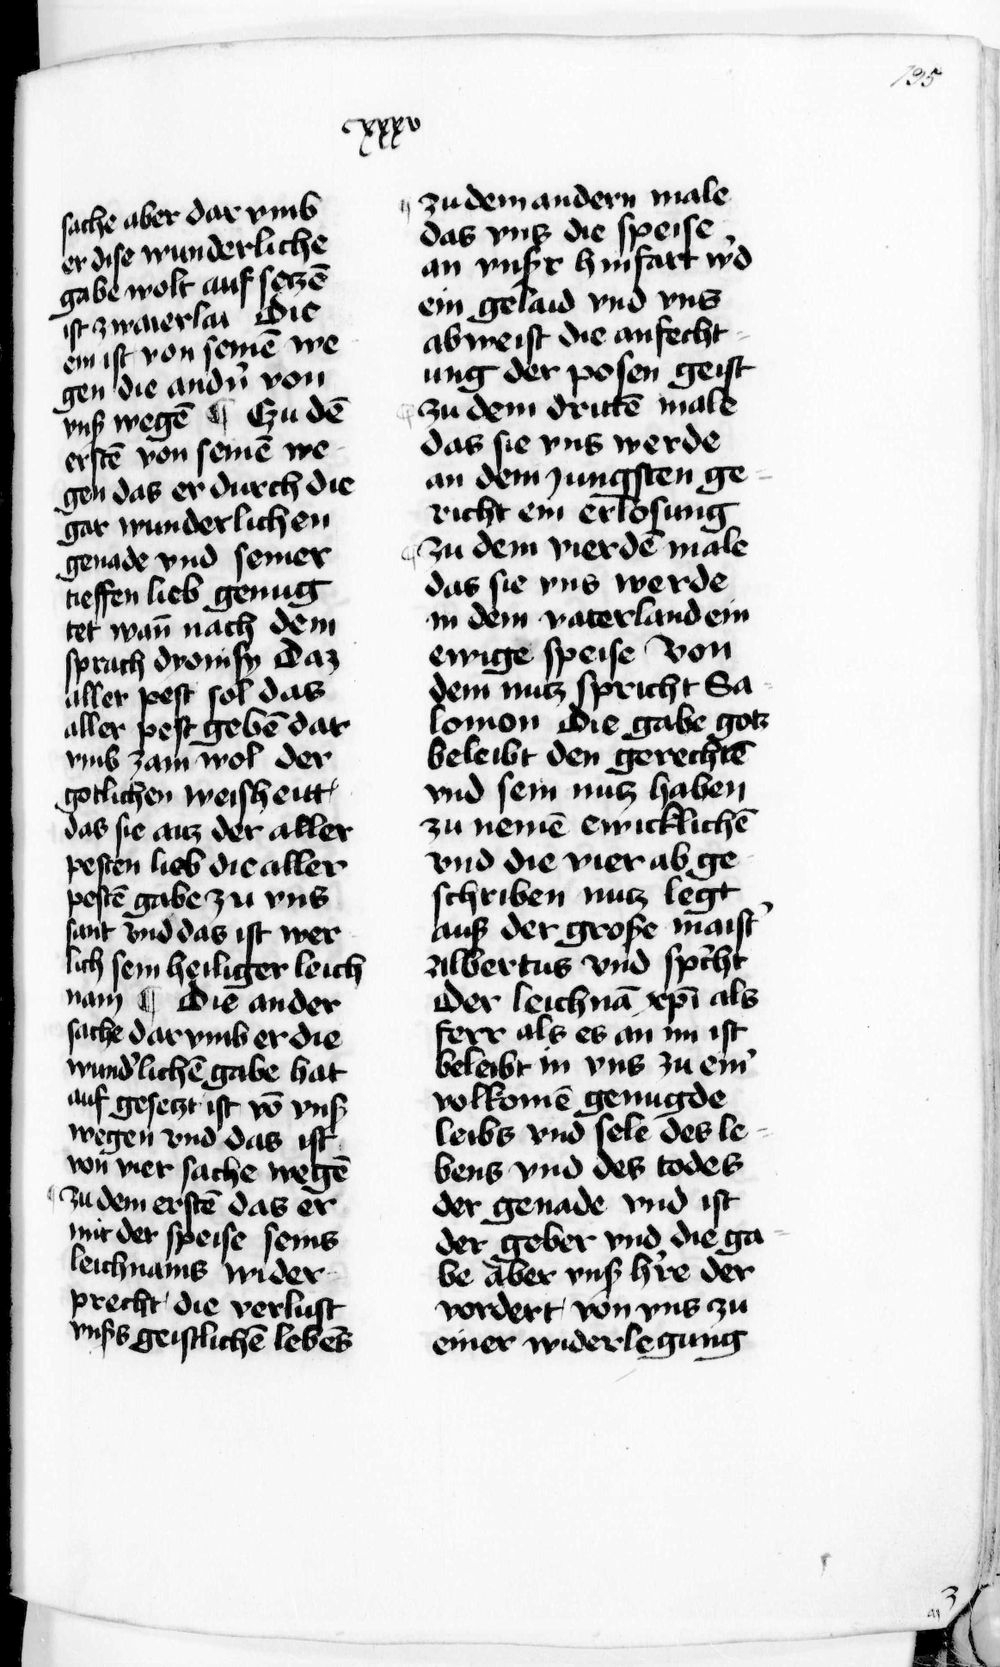 135
cxxxv
sache aber dar vmb
er dise wunderliche
gabe wolt auf seczē
ist zwaierlai Die
ein ist von seinē we
gen die andn̄ von
vnß wegē ¶ Czu dē
erstē von seinē we
gen das er durch die
gar wunderlichen
genade vnd seiner
tieffen lieb genug
tet wañ nach dem
sprach dyonisy Daz
aller pest sol das
aller pest gebē dar
vmb zam wol der
gotlichen weisheitt
das sie auz der aller
pesten lieb die aller
pestē gabe zu vns
sant vnd das ist wer
lich sein heiliger leich
nam ¶ Die ander
sache dar vmb er die
wund'lichē gabe hat
auf gesetzt ist vō vnß
wegen vnd das ist
von vier sache wegē
¶ zu dem erstē das er
mit der speise seins
leichnams wider
precht die verlust
vnßs geistlichē lebēs
¶ zu dem andern male
das vns die speise
an vnßr hinfart w'd
ein gelaid vnd vns
abweist die anfecht-
ung der posen geist
¶ zu dem drittē male
das sie vns werde
an dem jungsten ge-
richt ein erlosung
¶ zu dem vierdē male
das sie vns werde
in dem vaterland ein
ewige speise Von
dem nutz spricht Sa-
lomon Die gabe gotz
beleibt den gerechtē
vnd sein nutz haben
zu nemē ewicklichē
vnd die vier ab ge
schriben nutz legt
auß der große maist'
Albertus vnd sp'cht
Der leichnā xp̄i als
ferr als es an im ist
beleibt in vns zu ein'
volkomē genugde
leibs vnd sele des le-
bens vnd des todes
der genade vnd ist
der geber vnd die ga-
be aber vnß h're der
vordert von vns zu
einer widerlegung
3